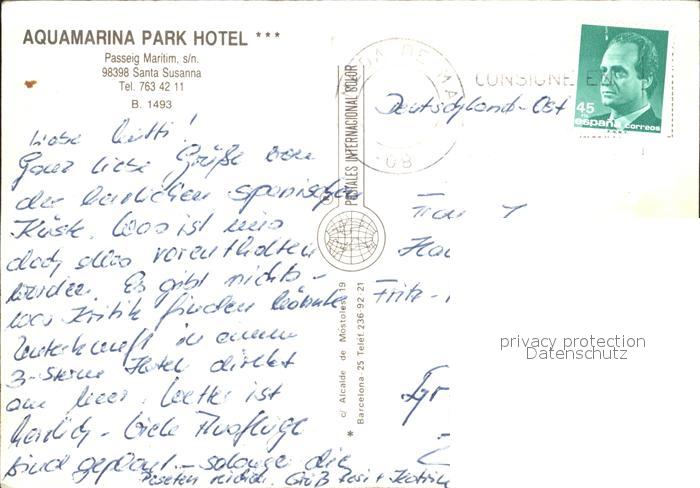 AQUAMARINA PARK HOTEL ***
Passeig Marítim, s/n.
98398 Santa Susanna
Tel. 763 42 11
B. 1493
CONSIGNE EN
45
españa correos
Deutschland-Ost
Liebe Mutti!
Ganz liebe Grüße von
der herrlichen spanischen
Küste. Was ist uns
doch alles vorenthalten
worden. Es gibt nichts-
was Kritik finden könnte
Unterkunft in einem
3-Sterne Hotel direkt
am Meer. Wetter ist
herrlich - viele Ausflüge
sind geplant - solange die
Peseten reichen. Gruß
POSTALES INTERNACIONAL COLOR
c/ Alcalde de Móstoles, 19
Barcelona - 25 Telef. 236 92 21
08
Frau
Fritz-
privacy protection
Datenschutz